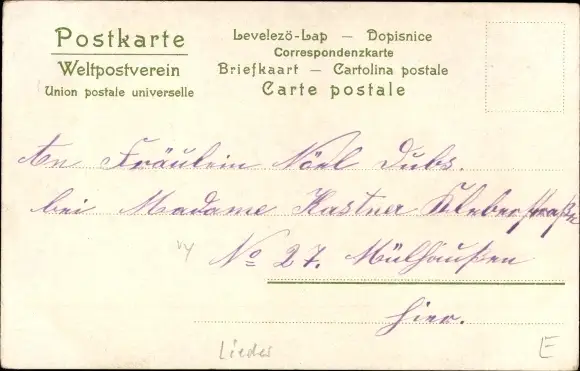 Postkarte
Weltpostverein
Union postale universelle
Levelező-Lap — Dopisnice
Correspondenzkarte
Briefkaart — Cartolina postale
Carte postale
An Fräulein Nöel Dubs.
bei Madame Kastner Kleberstraße
No 27. Mülhausen
hier.
Lieder
E